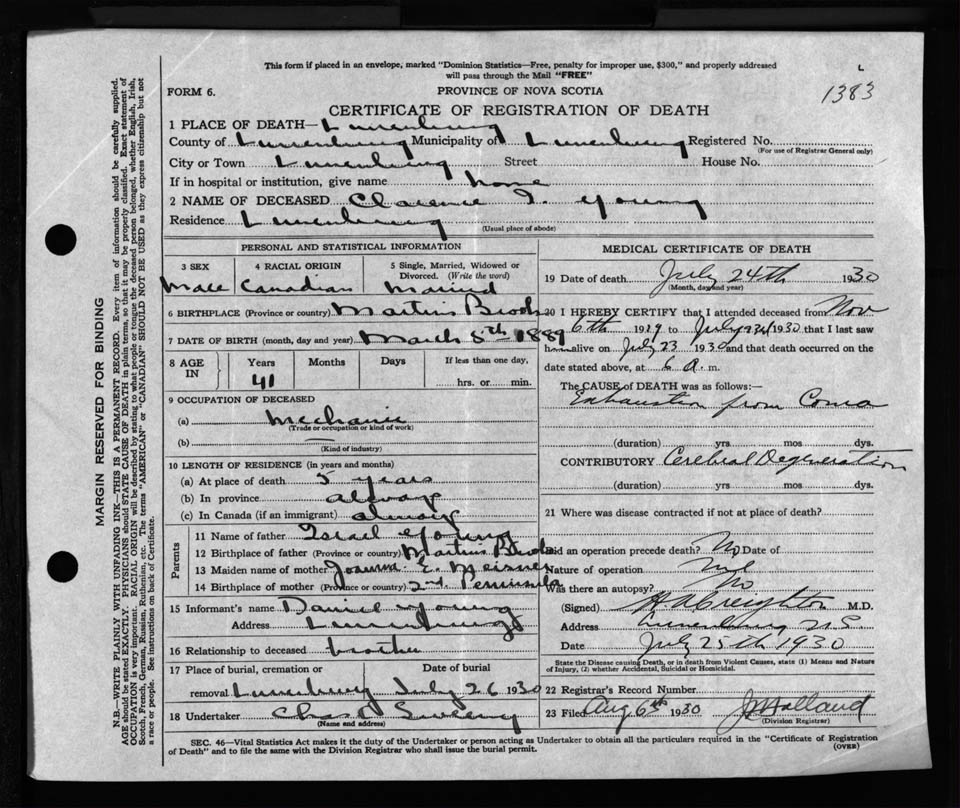 This form if placed in an envelope, marked "Dominion Statistics—Free, penalty for improper use, $300," and properly addressed
will pass through the Mail "FREE"
FORM 6.
PROVINCE OF NOVA SCOTIA
1383
CERTIFICATE OF REGISTRATION OF DEATH
1 PLACE OF DEATH— Lunenburg
County of Lunenburg Municipality of Lunenburg Registered No.
(For use of Registrar General only)
City or Town Lunenburg Street House No.
If in hospital or institution, give name home
2 NAME OF DECEASED Clarence I. Young
Residence Lunenburg
(Usual place of abode)
PERSONAL AND STATISTICAL INFORMATION
3 SEX
4 RACIAL ORIGIN
5 Single, Married, Widowed or
Divorced. (Write the word)
Male Canadian Married
6 BIRTHPLACE (Province or country) Martins Brook
7 DATE OF BIRTH (month, day and year) March 8th 1889
8 AGE
IN
Years
Months
Days
If less than one day,
41
hrs. or min.
9 OCCUPATION OF DECEASED
(a) Mechanic
(Trade or occupation or kind of work)
(b) —
(Kind of industry)
10 LENGTH OF RESIDENCE (in years and months)
(a) At place of death 5 years
(b) In province always
(c) In Canada (if an immigrant) always
Parents
11 Name of father Israel Young
12 Birthplace of father (Province or country) Martins Brook
13 Maiden name of mother Joanna E. Meisner
14 Birthplace of mother (Province or country) 2nd Peninsula
15 Informant's name Daniel Young
Address Lunenburg
16 Relationship to deceased brother
17 Place of burial, cremation or
Date of burial
removal Lunenburg July 26 1930
18 Undertaker Chas Sweeny
(Name and address)
MEDICAL CERTIFICATE OF DEATH
19 Date of death July 24th 1930
(Month, day and year)
20 I HEREBY CERTIFY that I attended deceased from Nov
6th 1929 to July 24 1930 that I last saw
him alive on July 23 1930 and that death occurred on the
date stated above, at 6 a. m.
The CAUSE OF DEATH was as follows:—
Exhaustion from Coma
(duration) yrs mos dys.
CONTRIBUTORY Cerebral Degeneration
(duration) yrs mos dys.
21 Where was disease contracted if not at place of death?
Did an operation precede death? No Date of
Nature of operation nil
Was there an autopsy? No
(Signed) H A Creighton M.D.
Address Lunenburg N.S.
Date July 25th 1930
State the Disease causing Death, or in death from Violent Causes, state (1) Means and Nature
of Injury, (2) whether Accidental, Suicidal or Homicidal.
22 Registrar's Record Number
23 Filed Aug 6th 1930 J Holland
(Division Registrar)
SEC. 46—Vital Statistics Act makes it the duty of the Undertaker or person acting as Undertaker to obtain all the particulars required in the "Certificate of Registration
of Death" and to file the same with the Division Registrar who shall issue the burial permit.
(OVER)
MARGIN RESERVED FOR BINDING
N.B.—WRITE PLAINLY WITH UNFADING INK—THIS IS A PERMANENT RECORD. Every item of information should be carefully supplied.
AGE should be stated EXACTLY. PHYSICIANS should STATE CAUSE OF DEATH in plain terms, so that it may be properly classified. Exact statement of
OCCUPATION is very important. RACIAL ORIGIN will be described by stating to what people or tongue the deceased person belonged, whether English, Irish,
Scotch, French, German, Russian, Ruthenian, etc. The terms "AMERICAN" or "CANADIAN" SHOULD NOT BE USED as they express citizenship but not
a race or people. See instructions on back of Certificate.